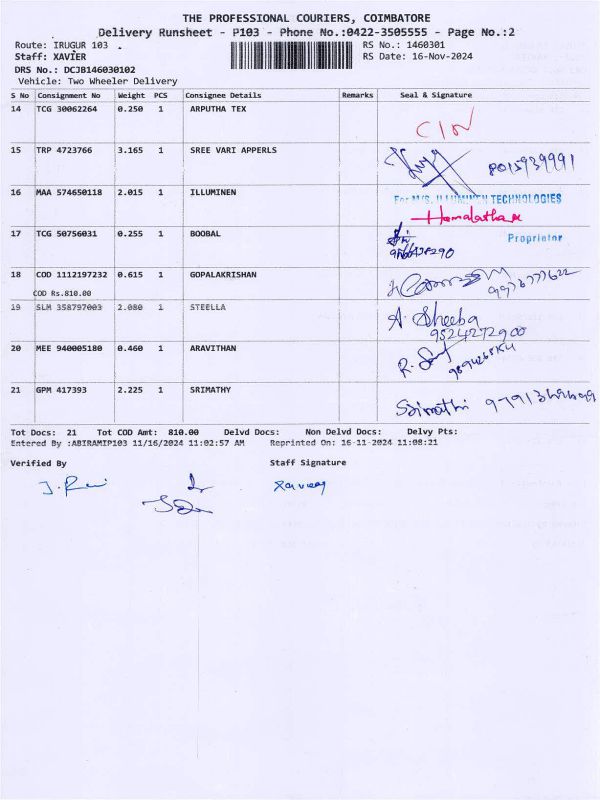 THE PROFESSIONAL COURIERS, COIMBATORE
Delivery Runsheet - P103 - Phone No.:0422-3505555 - Page No.:2
Route: IRUGUR 103 RS No.: 1460301
Staff: XAVIER RS Date: 16-Nov-2024
DRS No.: DCJB146030102
Vehicle: Two Wheeler Delivery
S No Consignment No Weight PCS Consignee Details Remarks Seal & Signature
14 TCG 30062264 0.250 1 ARPUTHA TEX
15 TRP 4723766 3.165 1 SREE VARI APPERLS 8015939991
16 MAA 574650118 2.015 1 ILLUMINEN For M/S. ILLUMINEN TECHNOLOGIES
Hemalatha
17 TCG 50756031 0.255 1 BOOBAL Proprietor
18 COD 1112197232 0.615 1 GOPALAKRISHAN
COD Rs.810.00
19 SLM 358797003 2.080 1 STEELLA A. Sheeba
9524272900
20 MEE 940005180 0.460 1 ARAVITHAN
21 GPM 417393 2.225 1 SRIMATHY Srimathi
Tot Docs: 21 Tot COD Amt: 810.00 Delvd Docs: Non Delvd Docs: Delvy Pts:
Entered By :ABIRAMIP103 11/16/2024 11:02:57 AM Reprinted On: 16-11-2024 11:08:21
Verified By Staff Signature